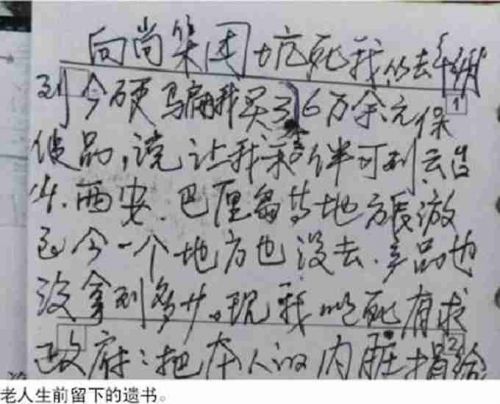 向尚集团坑死我从去年
到今硬骗我买了6万余元保
健品,说让我和老伴可到云台
山.西安.巴厘岛等地方旅游
至今一个地方也没去,产品也
没拿到多少。现我以死有求
政府:把本人的内脏捐给
老人生前留下的遗书。